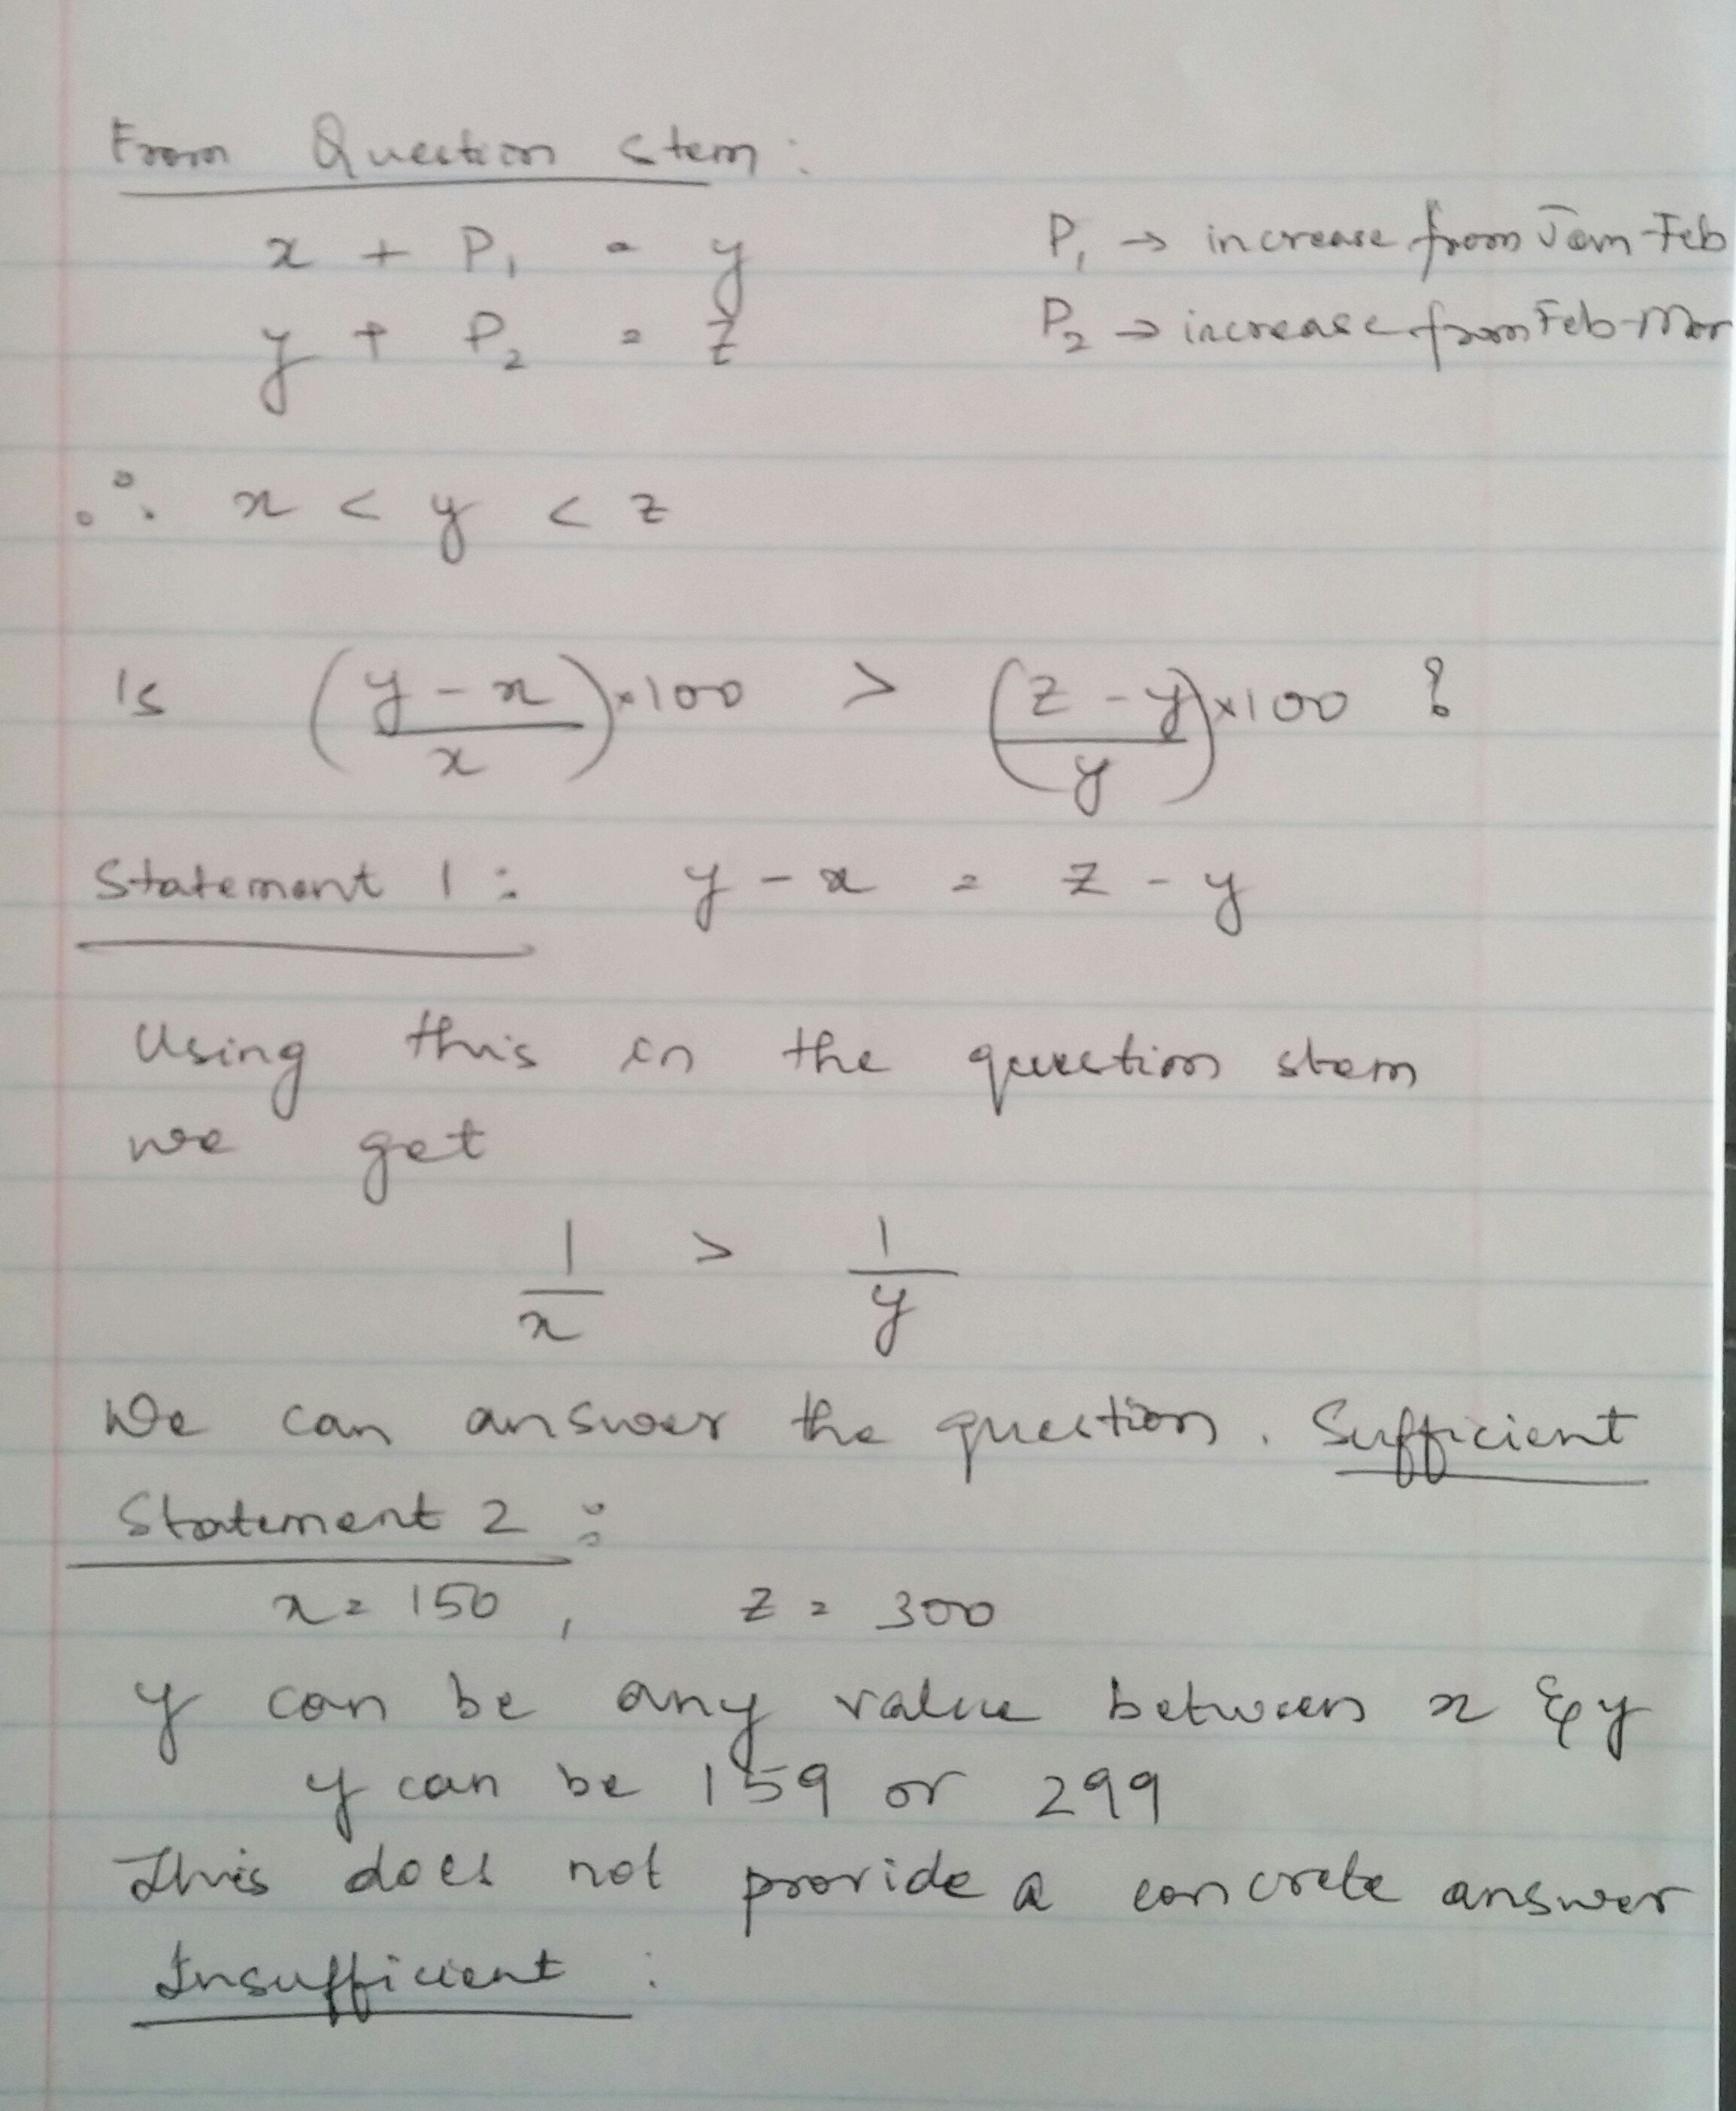 From Question stem:
x + P₁ = y    P₁ → increase from Jan-Feb
y + P₂ = z    P₂ → increase from Feb-Mar
∴ x < y < z
Is ((y-x)/x)×100 > ((z-y)/y)×100 ?
Statement 1: y - x = z - y
Using this in the question stem
we get
1/x > 1/y
We can answer the question. Sufficient
Statement 2:
x = 150, z = 300
y can be any value between x & y
y can be 159 or 299
This does not provide a concrete answer
Insufficient: